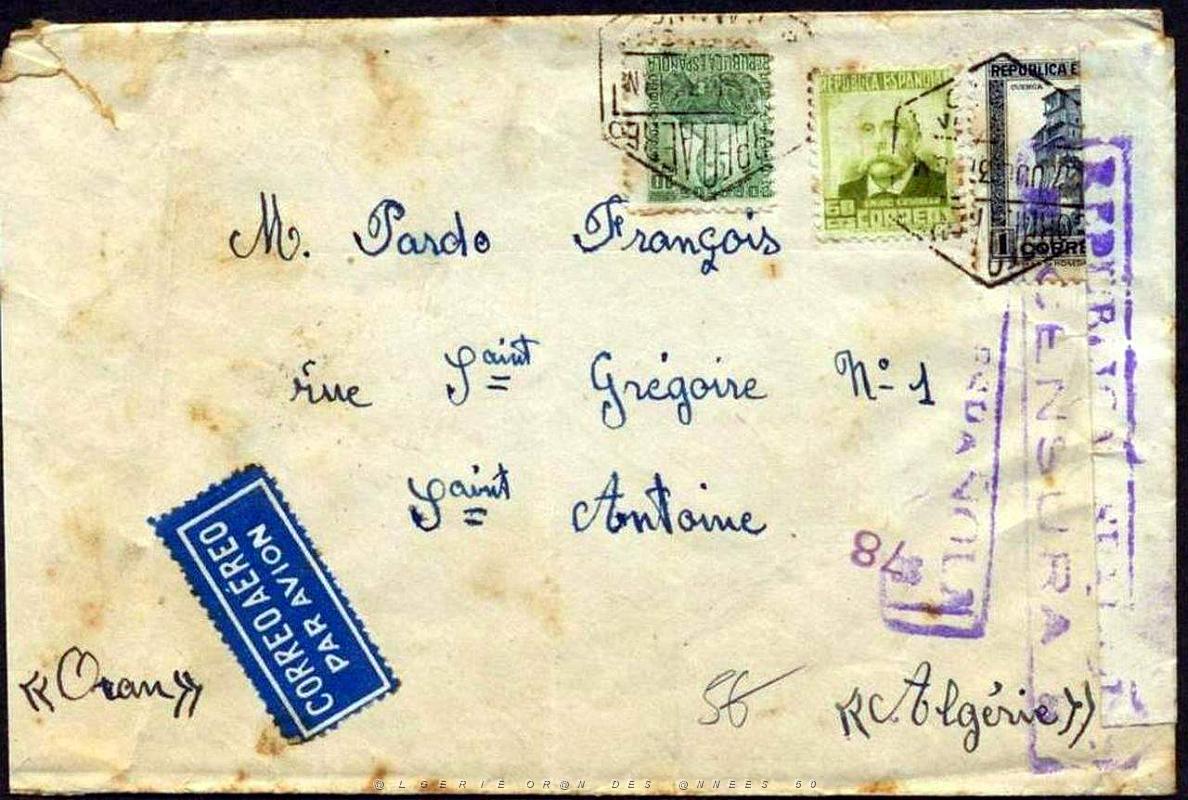 REPÚBLICA ESPAÑOLA
REPÚBLICA ESPAÑOLA
60 CTS CORREOS
REPÚBLICA E
CUENCA
1 CORRE
M. Pardo François
rue Saint Grégoire N° 1
Saint Antoine
CORREO AÉREO
PAR AVION
«Oran»
56
«Algérie»
CENSURA
REPUBLICA
ESPAÑOLA
78
@LGERIE OR@N DES @NNEES 50